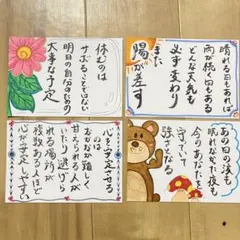 休むのは
サボることではない
明日の自分のための
大事な予定
晴れる日もあれば
雨が続く日もある
どんな天気も
必ず変わり
また
陽が差す
心を安定させる
には
おなか
甘えられる人が
いたり逃げら
れる場所が
複数ある人ほど
心が安定しやすい
泣いた日も
眠れなかった夜も
今のあなたを
守っていて
強さになる